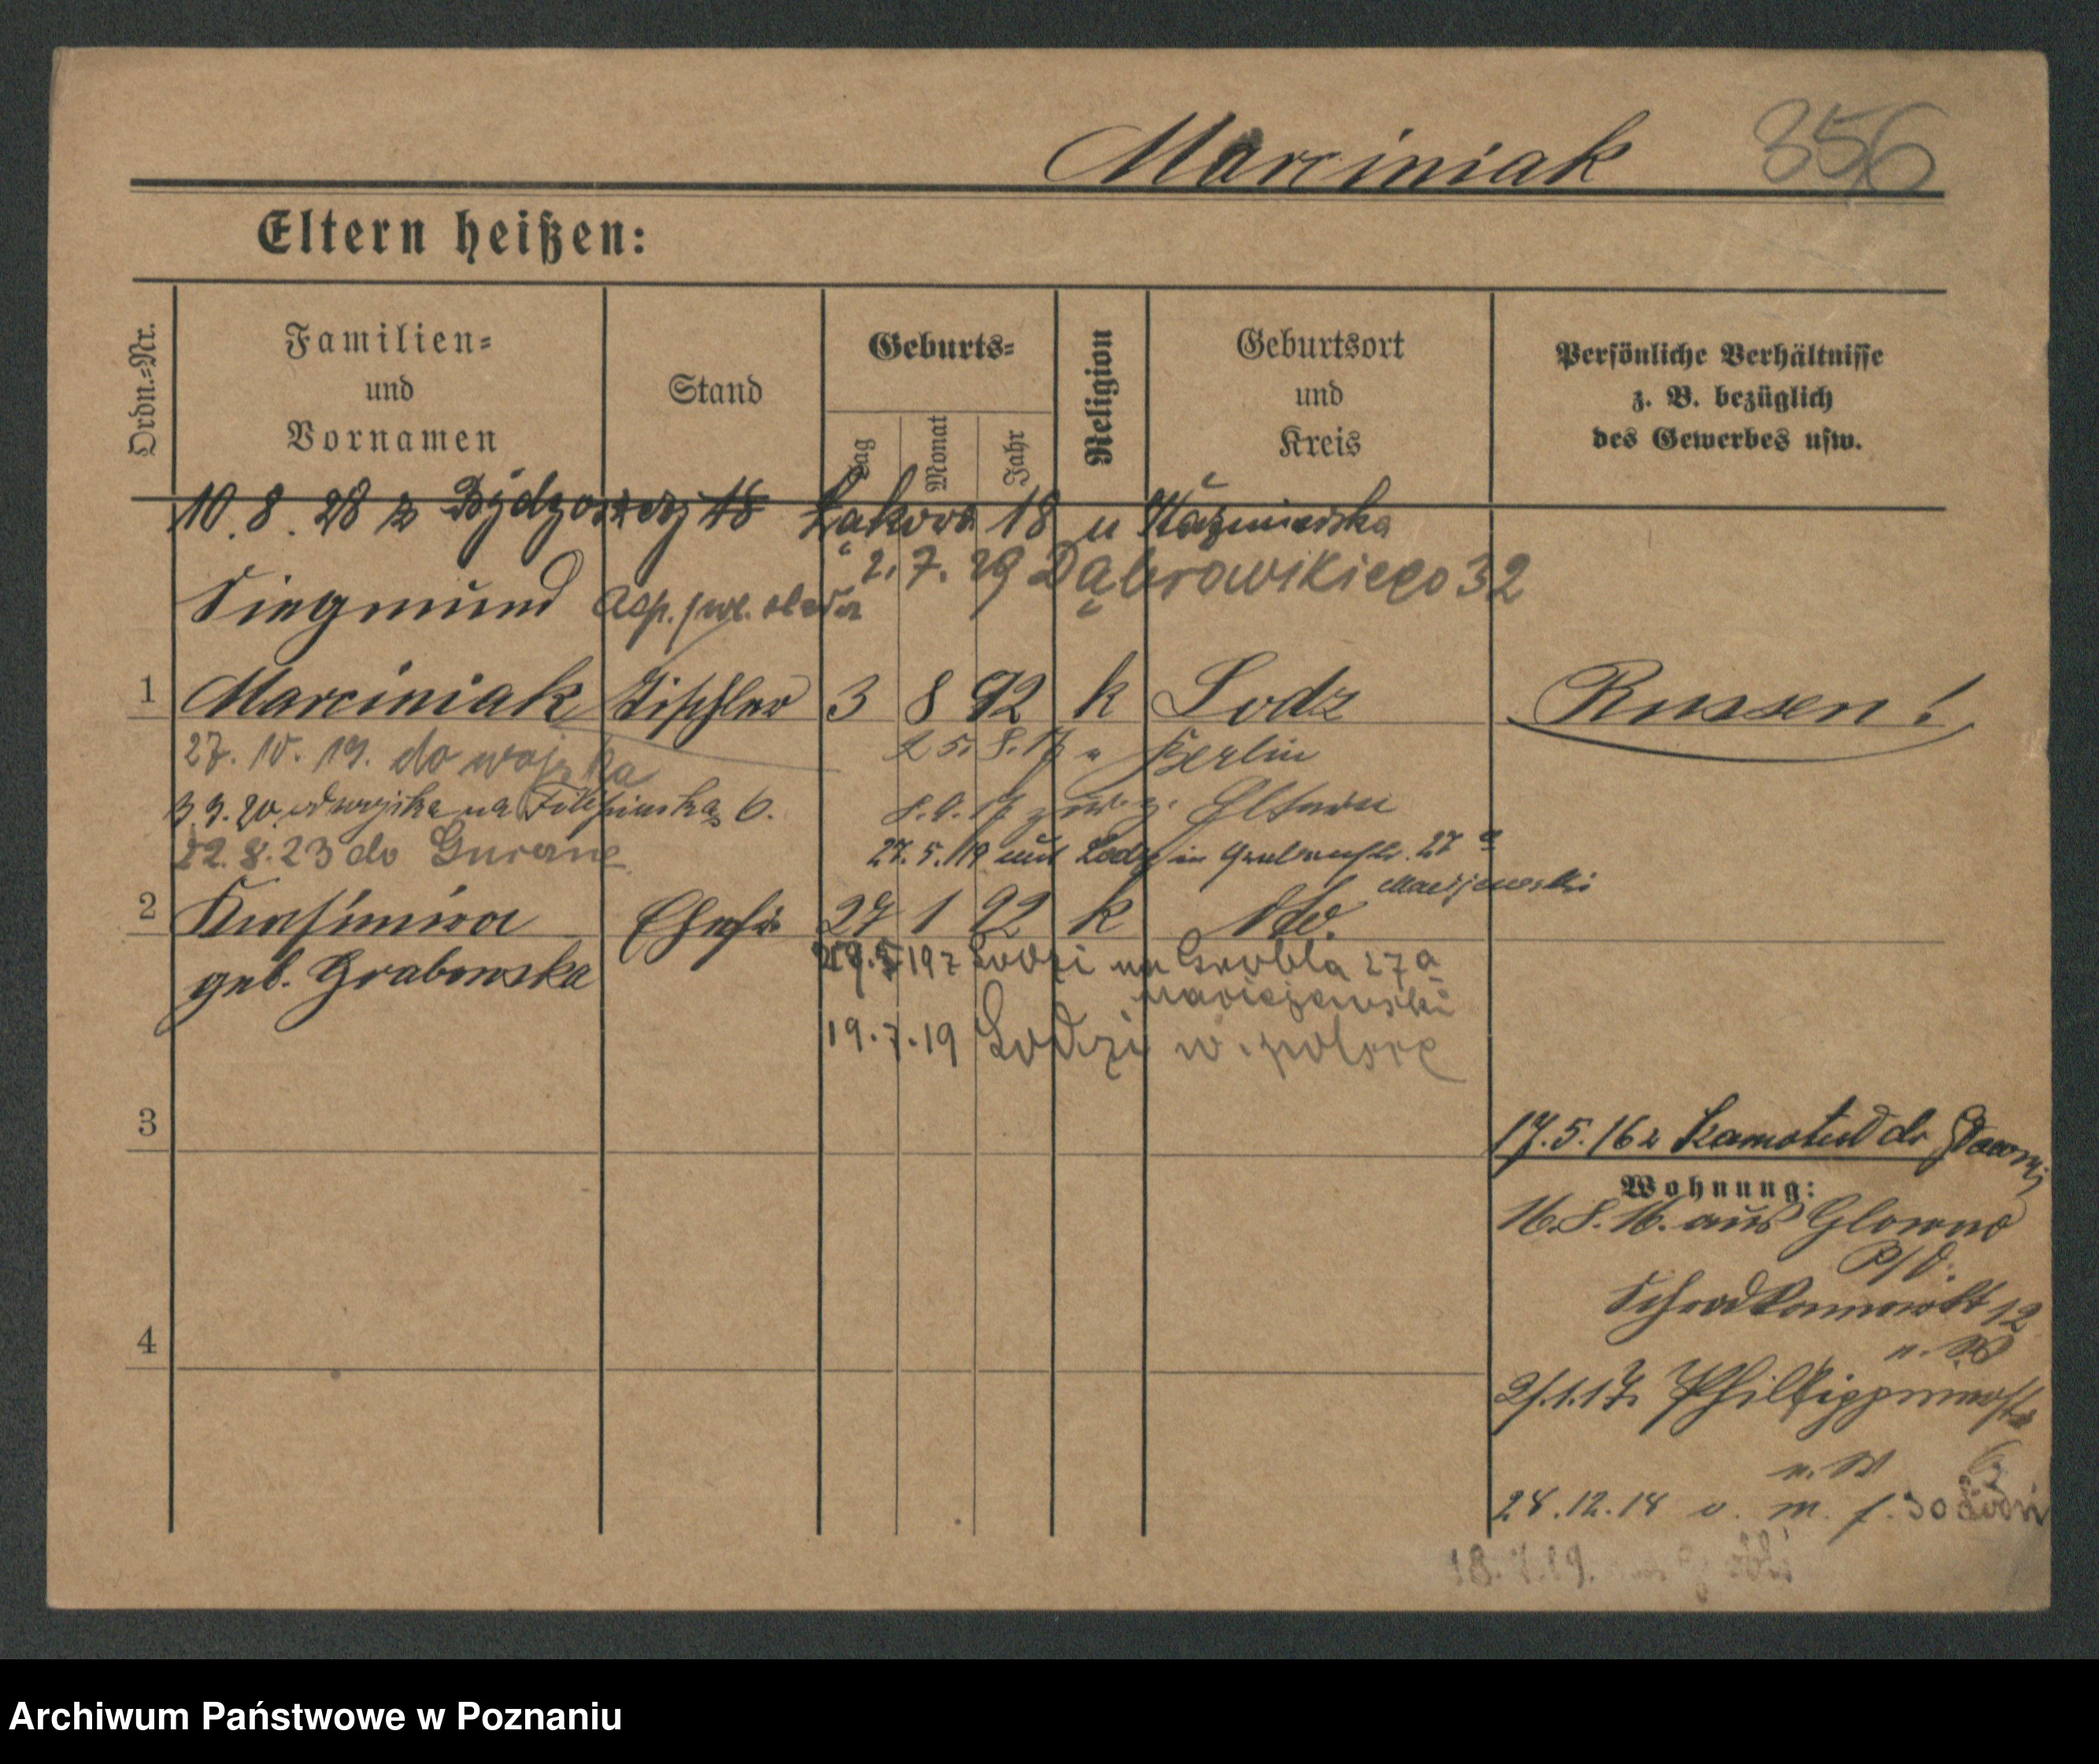 Marciniak 356
Eltern heißen:
Ordn.-Nr.
Familien-
und
Vornamen
Stand
Geburts-
Tag
Monat
Jahr
Religion
Geburtsort
und
Kreis
Persönliche Verhältnisse
z. B. bezüglich
des Gewerbes usw.
10. 8. 28 z Bydgoszczy 18 Łąkowa 18 u Kaźmierska
2. 7. 29 Dąbrowskiego 32
Siegmund
1 Marciniak Tischler 3 8 92 k Lodz Russen!
27. 10. 19. do wojska 25. 8. 17 Berlin
3. 9. 20. z wojska na Filipińska 6. 8. 9. 17 Eltern
22. 8. 23 do 27. 5. 19 aus Lodz in Grabenstr. 27 a
Maciejewski
2 Kasimira Ehefr. 27 1 92 k dto.
geb. Grabowska 27. 5. 19 z Lodzi na Grobla 27 a
Maciejewski
19. 7. 19 Lodzi w. polsce
3
17. 5. 16 z do
Wohnung:
16. 8. 16. aus Glowno
Schrodkamarkt 12
4
2/1. 17.
28. 12. 18 v. m. f. 30 Łodzi
18. 7. 19.
Archiwum Państwowe w Poznaniu